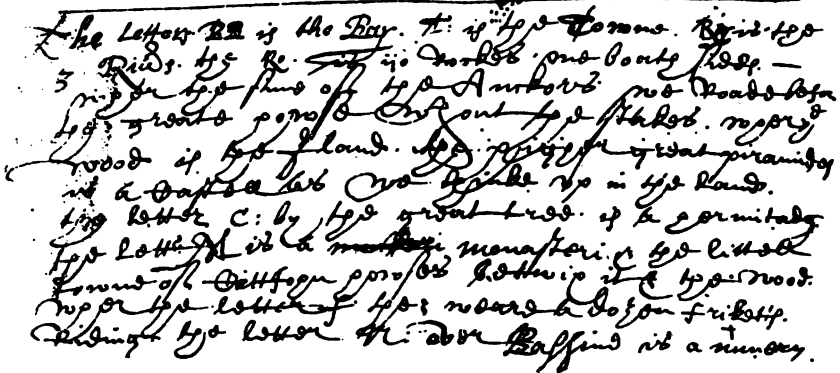 The letters BB is the Bay. T: is the Towne. R is the
River. the Ro. it is Rockes one boath sides. —
wher the sine of the Anckors we Roade befor
the greate howse without the stakes. wher ye
wood is the Iland. the higher great piramides
is a Castell as we thinke up in the Land.
the letter C: by the great tree is a hermitadg
the letter M is a monasteri & the littell
towne of howses betwix it & the wood.
wher the letter f: ther weare a dozen friketts
Riding the letter N: over Bassind is a nunery